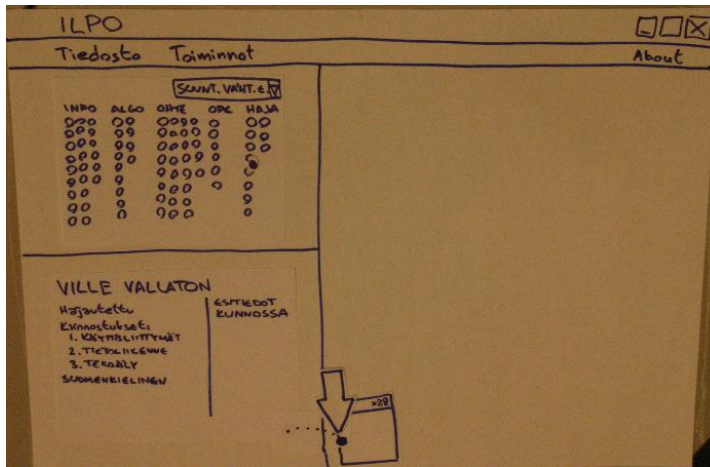 ILPO
Tiedosto Toiminnot About
SUUNT. VAIHT.E.
INFO ALGO OHTE OPE HAJA
VILLE VALLATON
Hajautettu
Kiinnostukset:
1. KÄYTTÖLIITTYMÄT
2. TIETOLIIKENNE
3. TEKOÄLY
SUOMENKIELINEN
ESITIEDOT
KUNNOSSA